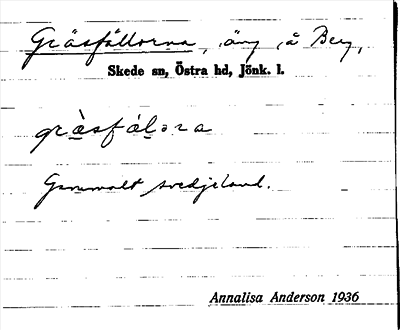 Gräsfållorna, äng å Berg,
Skede sn, Östra hd, Jönk. l.
gràsfáḷɔra
Gammalt svedjeland.
Annalisa Anderson 1936